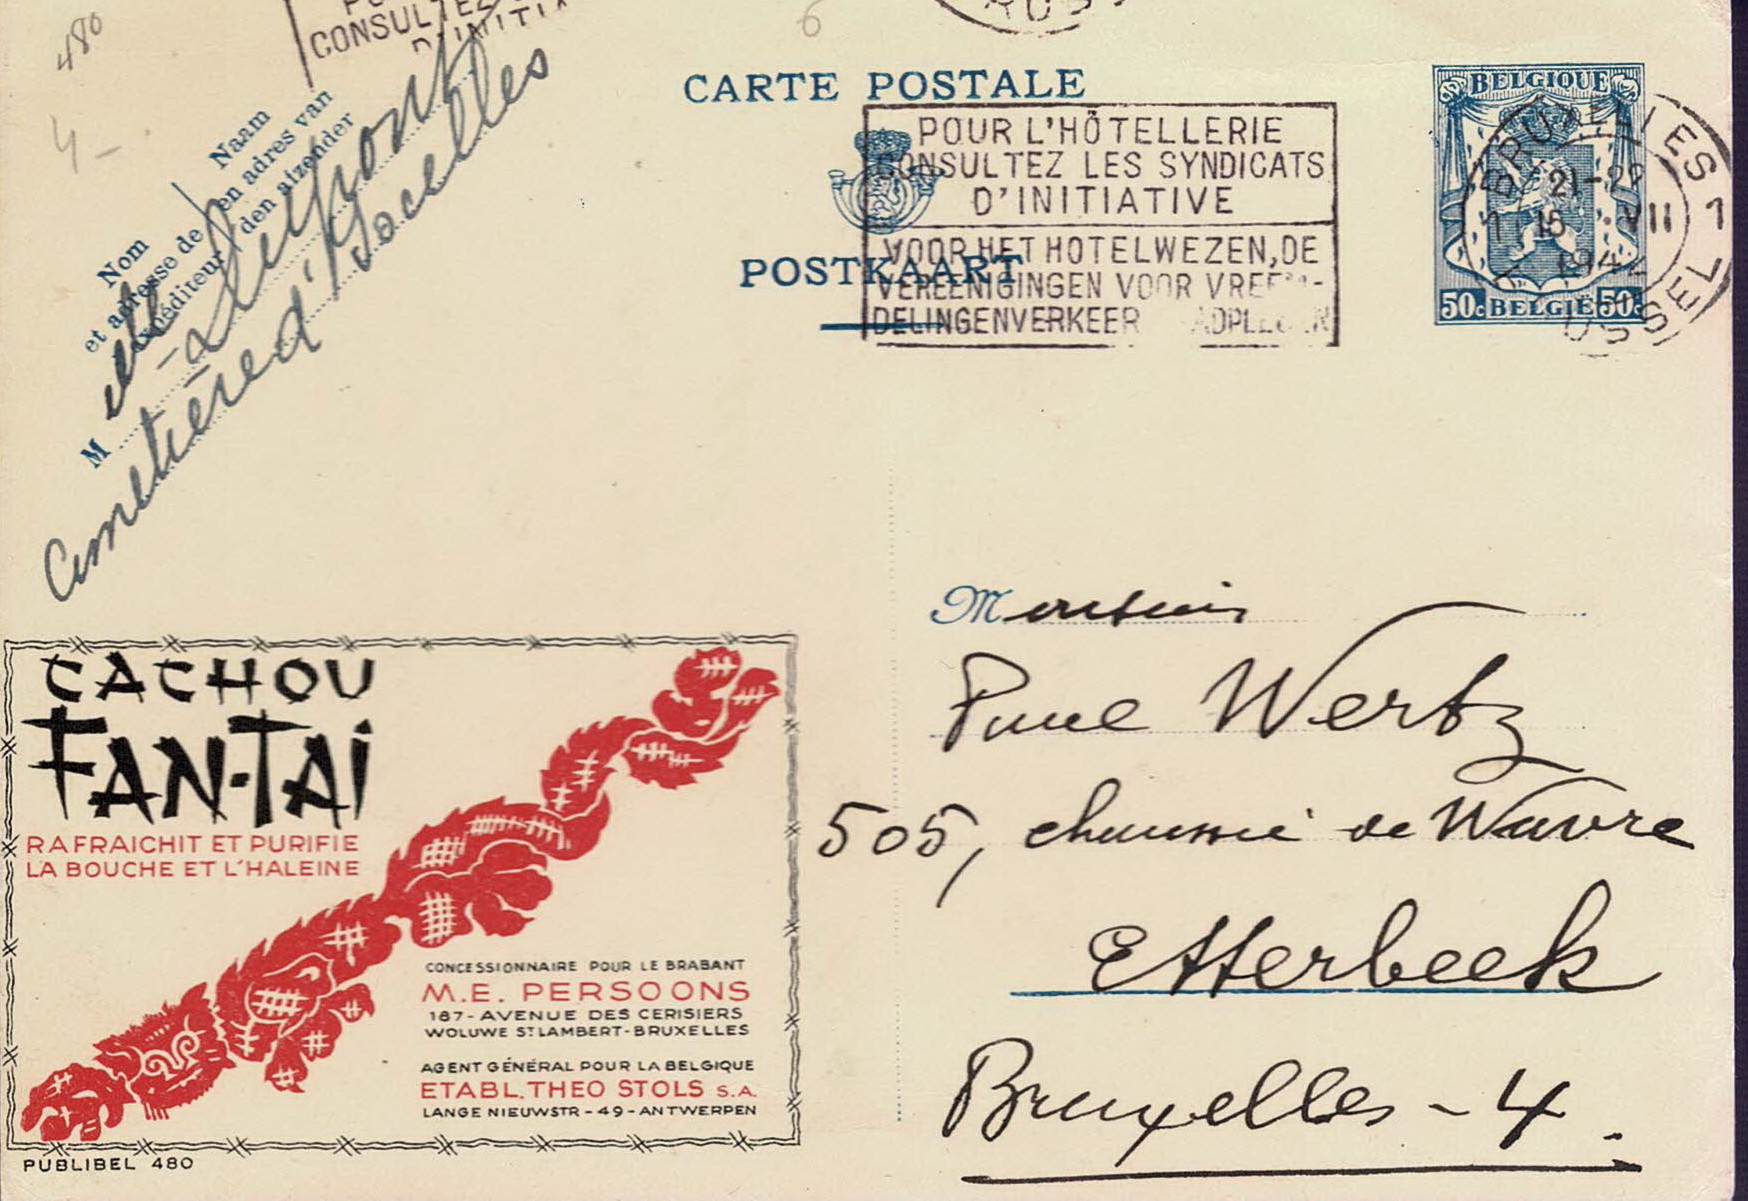 480
CONSULTEZ
D'INITIA
6
4 -
Naam
en adres van
den afzender
Nom
et adresse de
l'expéditeur
M elle Dumont
Cimetière d'Ixelles
CARTE POSTALE
POSTKAART
POUR L'HÔTELLERIE
CONSULTEZ LES SYNDICATS
D'INITIATIVE
VOOR HET HOTELWEZEN, DE
VEREENIGINGEN VOOR VREEM-
DELINGENVERKEER RAADPLEGEN
BELGIQUE
50c BELGIË 50c
BRUXELLES 1
21-22
15 VII
1942
1 BRUSSEL 1
Monsieur
Paul Wertz
505, chaussée de Wavre
Etterbeek
Bruxelles - 4.
CACHOU
FAN-TAI
RAFRAICHIT ET PURIFIE
LA BOUCHE ET L'HALEINE
CONCESSIONNAIRE POUR LE BRABANT
M.E. PERSOONS
187 - AVENUE DES CERISIERS
WOLUWE ST LAMBERT - BRUXELLES
AGENT GÉNÉRAL POUR LA BELGIQUE
ETABL. THEO STOLS S.A.
LANGE NIEUWSTR - 49 - ANTWERPEN
PUBLIBEL 480